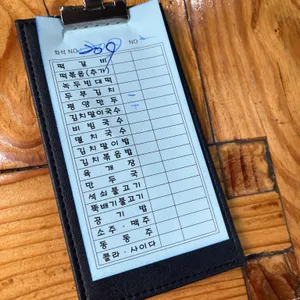 좌석 NO. 209 NO.
떡갈비
떡볶음(추가)
녹두빈대떡
두부김치
평양만두 一
김치말이국수 一
비빔국수
멸치국수
김치말이밥
김치볶음밥
육개장
만두국
석쇠불고기
뚝배기불고기
공기밥
소주·맥주
동동주
콜라·사이다